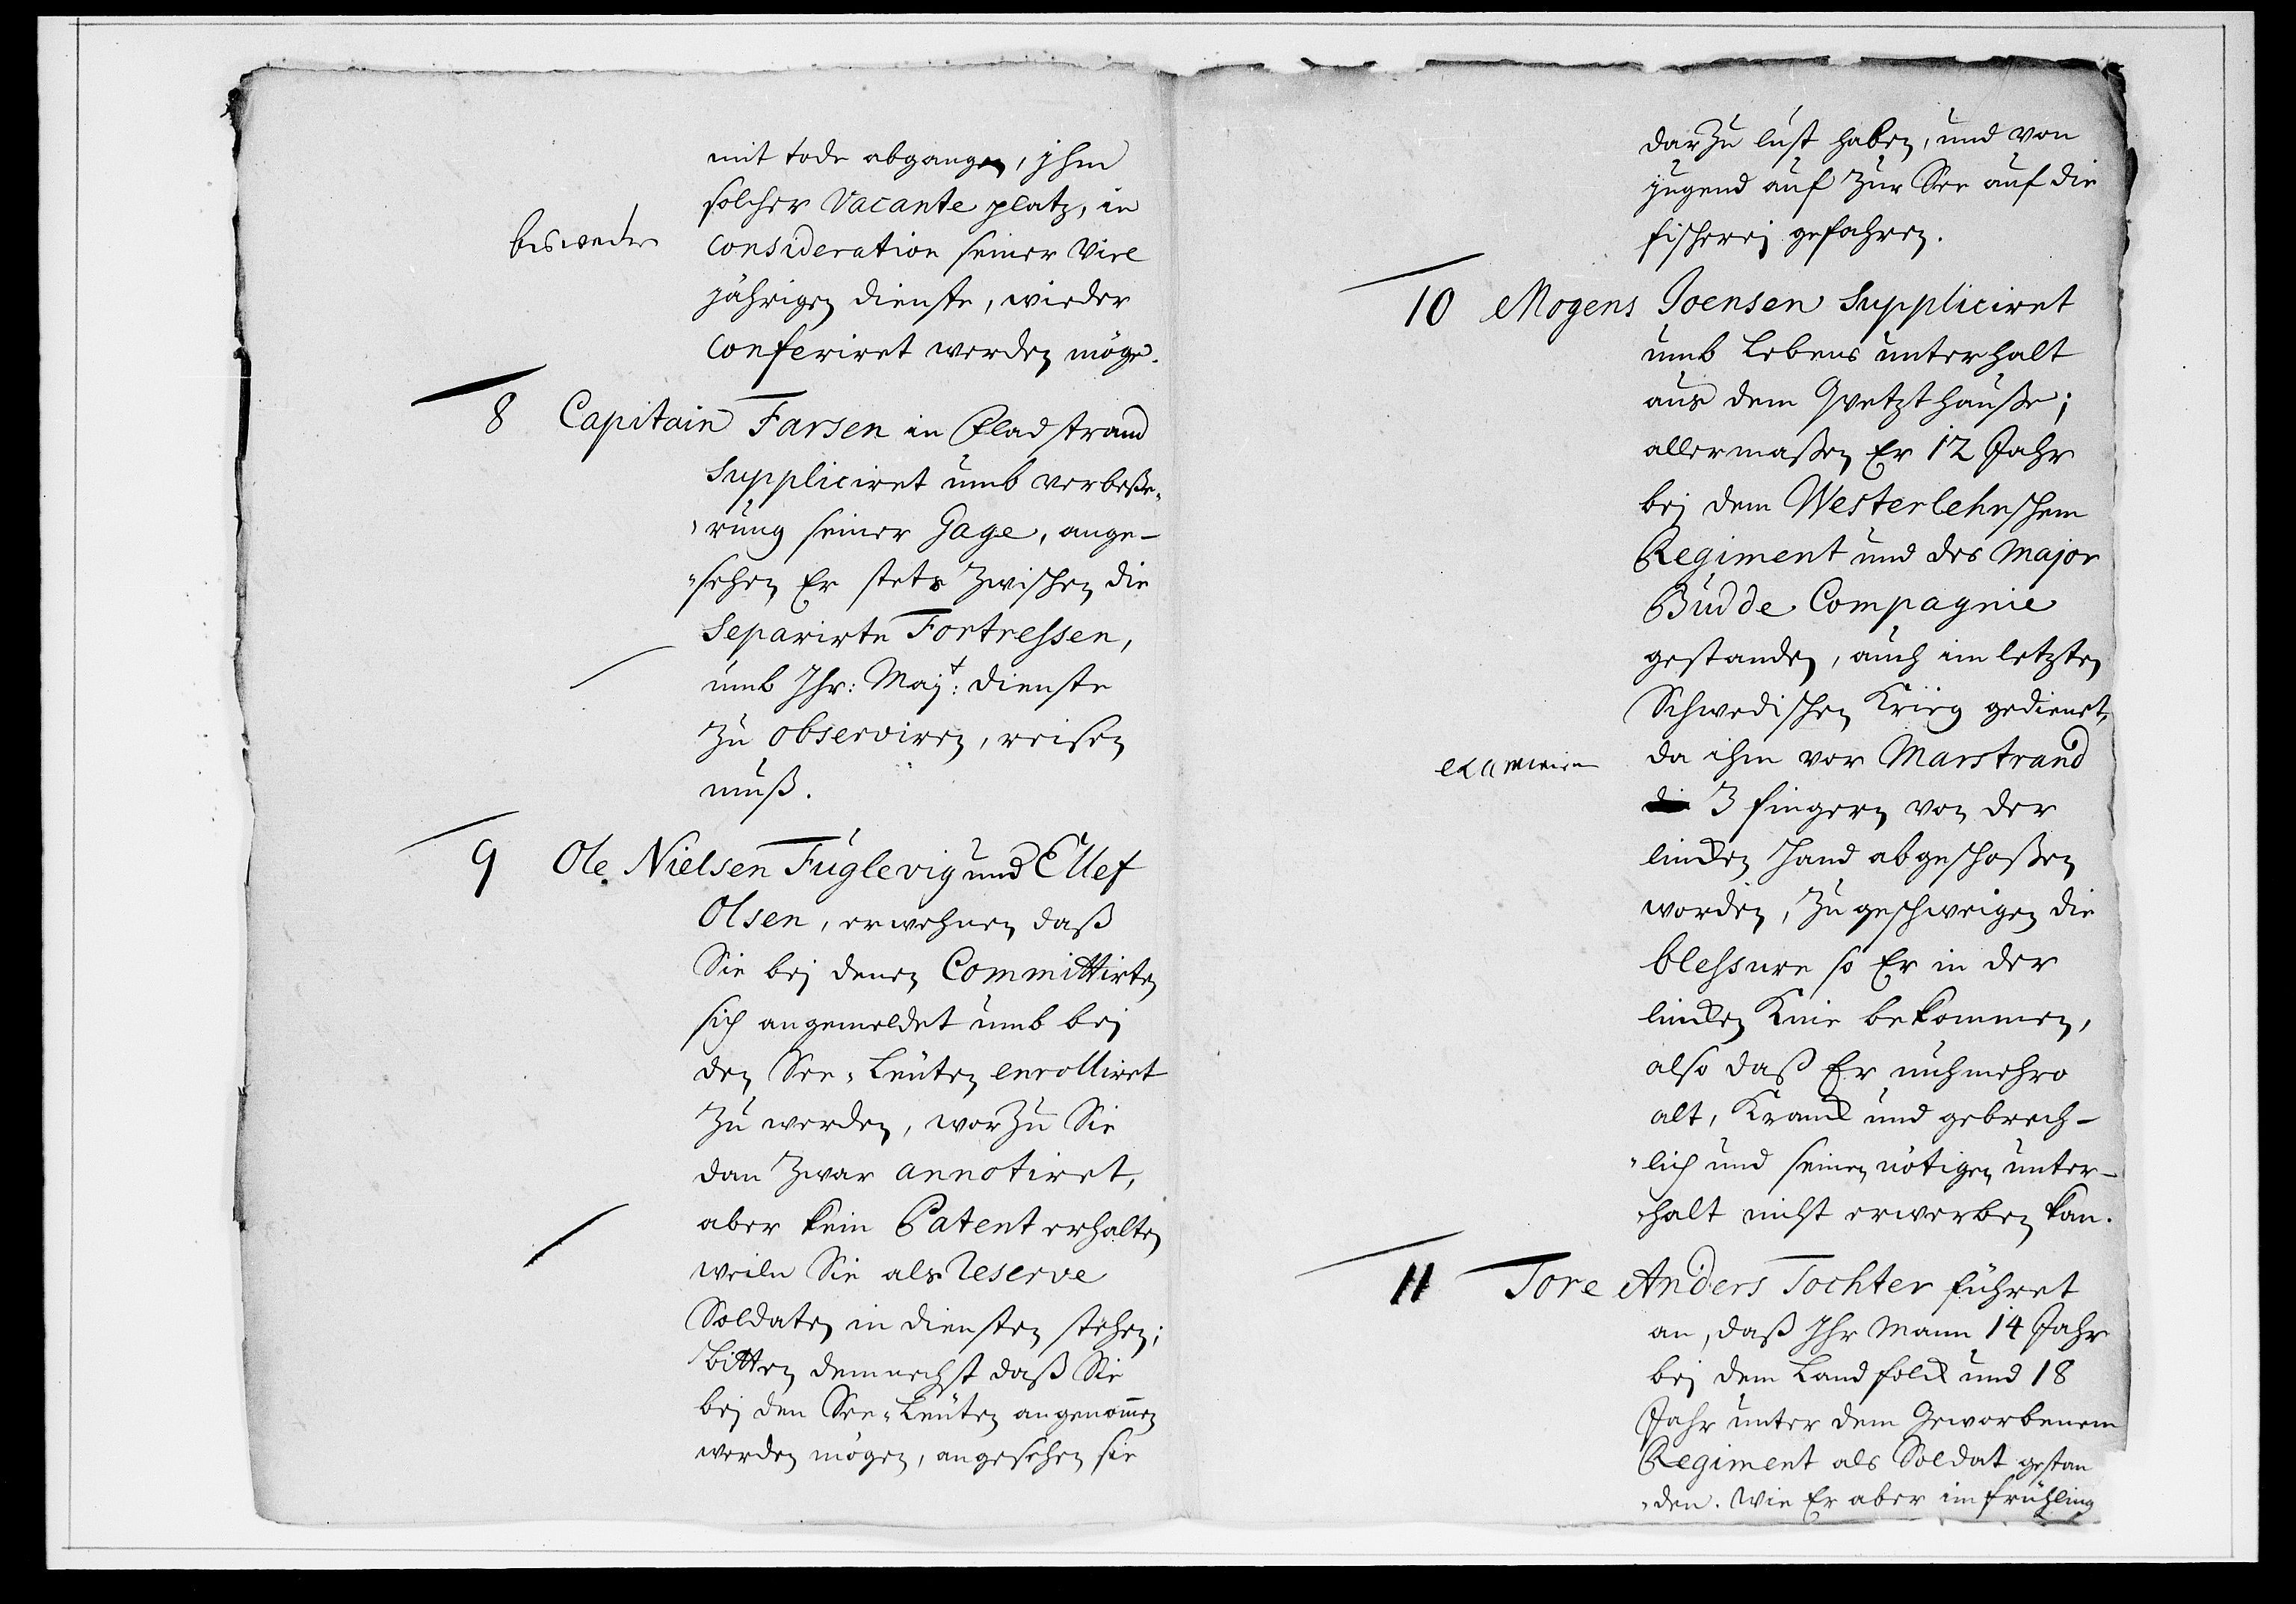 mit tode abgangen, ihm
solcher Vacante platz, in
consideration seiner viel
jährigen dienste, wieder
conferiret werden möge.
8 Capitain Farsen in Fladstrand
suppliciret umb verbeße-
rung seiner Gage, ange-
sehen Er stets zwischen die
separirte Fortressen,
umb Ihr: Maj:t dienste
zu observiren, reisen
muß.
9 Ole Nielsen Fuglevig und Ellef
Olsen, erwehnen daß
Sie bej denen Committirten
sich angemeldet umb bej
den See-Leuten enrolliret
zu werden, worzu Sie
dan zwar annotiret,
aber kein Patent erhalten
weiln Sie als Reserve
Soldaten in diensten stehen;
bitten demnechst daß Sie
bej den See-Leuten angenom̄en
werden mögen, angesehen sie
darzu lust haben, und von
jugend auf zur See auf die
fischerej gefahren.
10 Mogens Joensen suppliciret
umb Lebens unterhalt
aus dem Qvetzthauße;
allermaßen Er 12 Jahr
bej dem Westerlehnschem
Regiment und des Major
Budde Compagnie
gestanden, auch im letzten
Schwedischen Krieg gedienet,
examinir
da ihm vor Marstrand
3 fingern von der
lincken Hand abgeschoßen
worden, zu geschweigen die
blessure so Er in der
lincken Knie bekommen,
also daß Er nuhmehro
alt, Kranck und gebrech-
lich und seinen nötigen unter-
halt nicht erwerben kan.
11 Tore Anders Tochter führet
an, daß Ihr Mann 14 Jahr
bej dem Landfolck und 18
Jahr unter dem Geworbenem
Regiment als Soldat gestan
den. Wie Er aber im frühling